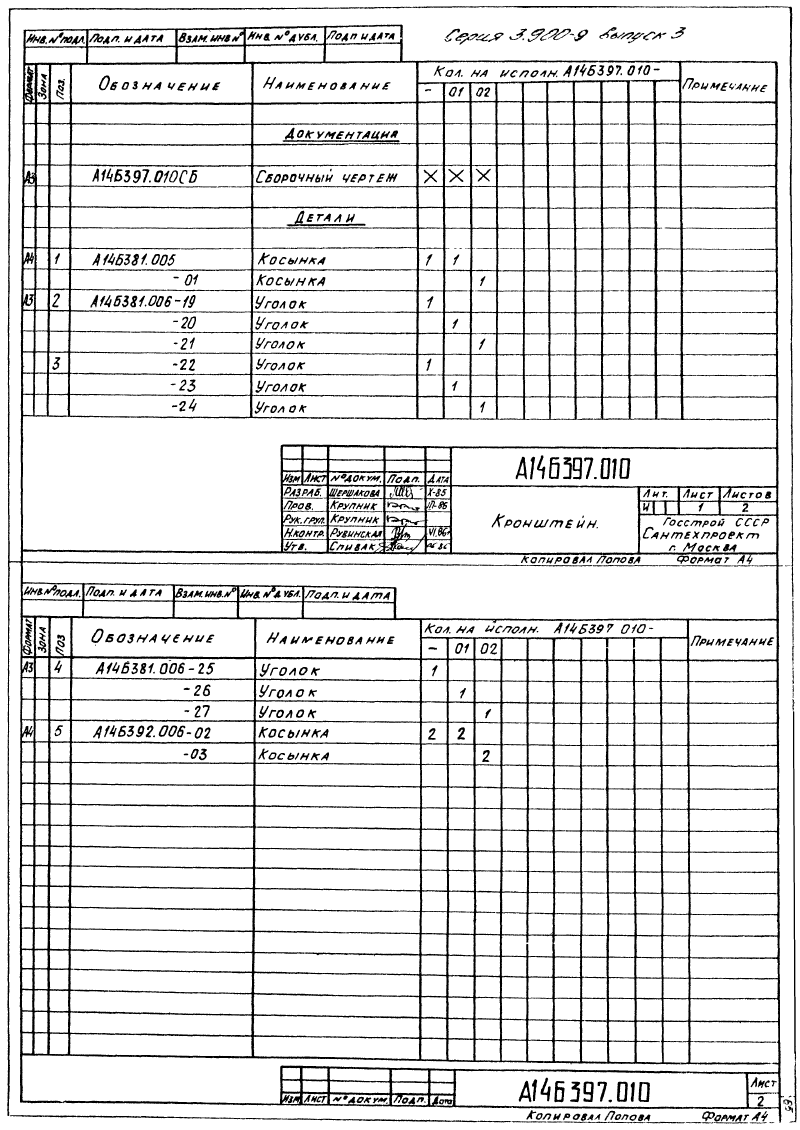 Серия 3.900-9 выпуск 3
Инв.№подл. Подп. и дата Взам.инв№ Инв.№дубл. Подп и дата
Формат Зона Поз. Обозначение Наименование Кол. на исполн. А14Б397.010- Примечание
- 01 02
Документация
А3 А14Б397.010СБ Сборочный чертеж X X X
Детали
А4 1 А14Б381.005 Косынка 1 1
-01 Косынка 1
А3 2 А14Б381.006-19 Уголок 1
-20 Уголок 1
-21 Уголок 1
3 -22 Уголок 1
-23 Уголок 1
-24 Уголок 1
А14Б397.010
Изм Лист №докум. Подп. Дата
Разраб. Шершакова X-85
Пров. Крупник
Рук.груп. Крупник
Н.контр. Рубинская VI.86г
Утв. Спивак
Кронштейн.
Лит. Лист Листов
И 1 2
Госстрой СССР
Сантехпроект
г. Москва
Копировал Попова Формат А4
Инв.№подл. Подп. и дата Взам.инв.№ Инв.№дубл. Подп. и дата
Формат Зона Поз Обозначение Наименование Кол. на исполн. А14Б397 010- Примечание
- 01 02
А3 4 А14Б381.006-25 Уголок 1
-26 Уголок 1
-27 Уголок 1
А4 5 А14Б392.006-02 Косынка 2 2
-03 Косынка 2
Изм Лист №докум. Подп. Дата
А14Б397.010
Лист
2
Копировал Попова Формат А4